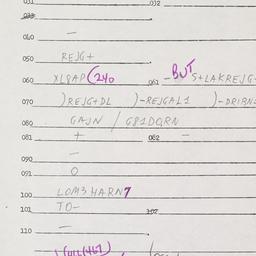 031 032
033
040 —
050 REJG+
060 XL8AP(240 061 -BUT S+LAKREJG-
070 )REJG+DL )-REJGAL1 )-DRIRN
080 GAJN / G81DQRN
081 + 082 —
090 —
091 O
100 LOM3HARN7
101 TO- 102
110 —